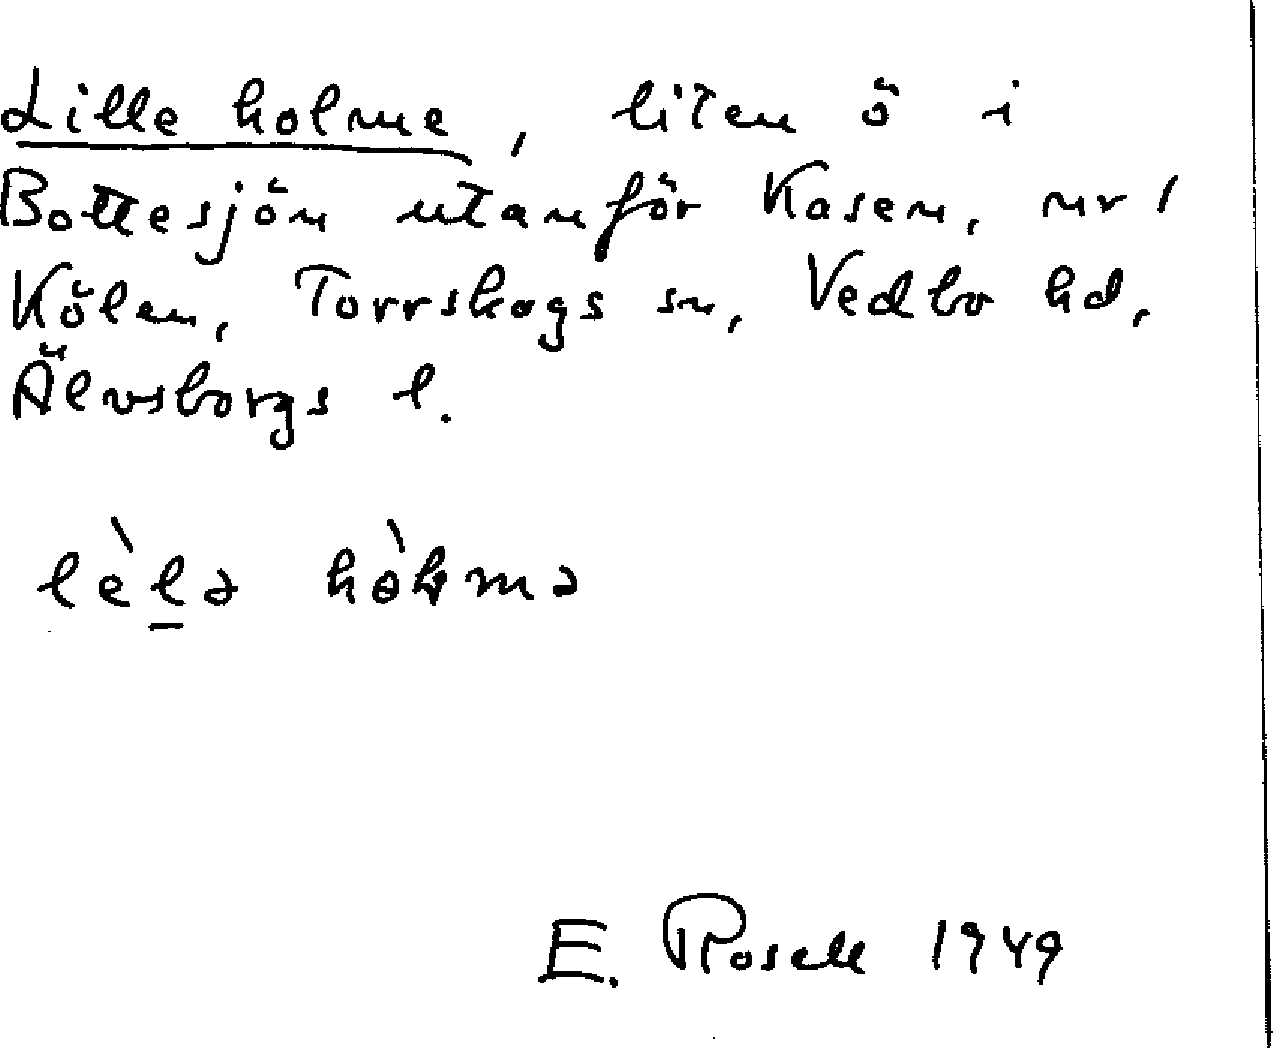 Lille holme, liten ö i
Bottesjön utanför Kasen, nr 1
Kölen, Torrskogs sn, Vedbo hd,
Älvsborgs l.
lèlə hòɫmə
E. Rosell 1949